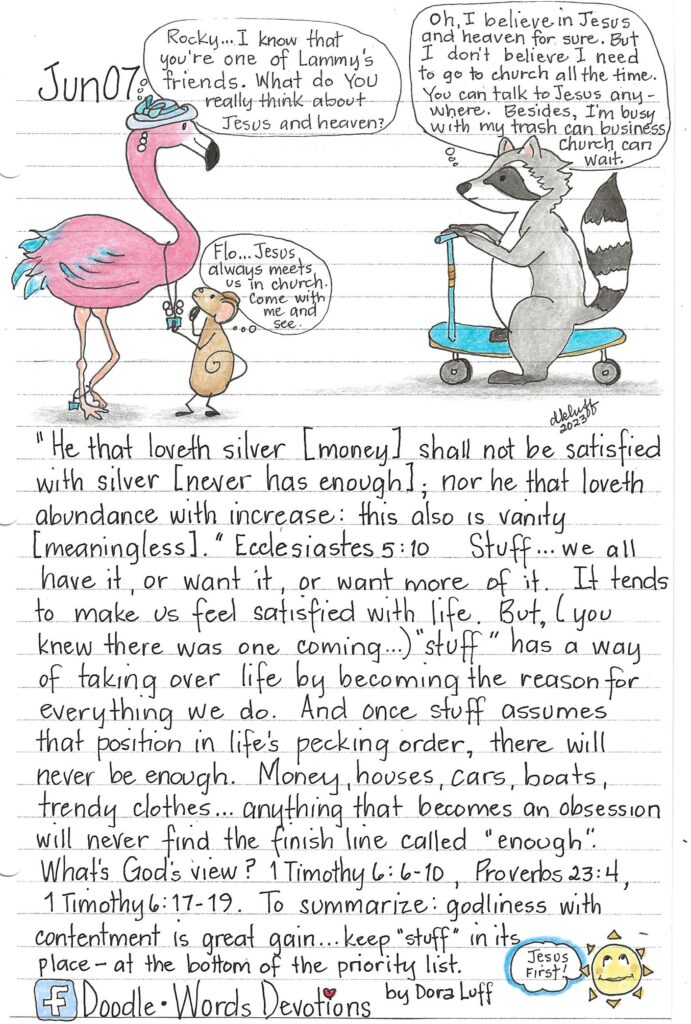 Jun07
Rocky... I know that
you're one of Lammy's
friends. What do You
really think about
Jesus and heaven?
Oh, I believe in Jesus
and heaven for sure. But
I don't believe I need
to go to church all the time.
You can talk to Jesus any-
where. Besides, I'm busy
with my trash can business
Church can
wait.
Flo... Jesus
always meets
us in church.
Come with
me and
see.
dkluff
2023
"He that loveth silver [money] shall not be satisfied
with silver [never has enough]; nor he that loveth
abundance with increase: this also is vanity
[meaningless]." Ecclesiastes 5:10 Stuff... we all
have it, or want it, or want more of it. It tends
to make us feel satisfied with life. But, (you
knew there was one coming...) "stuff" has a way
of taking over life by becoming the reason for
everything we do. And once stuff assumes
that position in life's pecking order, there will
never be enough. Money, houses, cars, boats,
trendy clothes... anything that becomes an obsession
will never find the finish line called "enough".
What's God's view? 1 Timothy 6:6-10, Proverbs 23:4,
1 Timothy 6:17-19. To summarize: godliness with
contentment is great gain... keep "stuff" in its
place - at the bottom of the priority list.
Jesus
First!
f Doodle • Words Devotions by Dora Luff